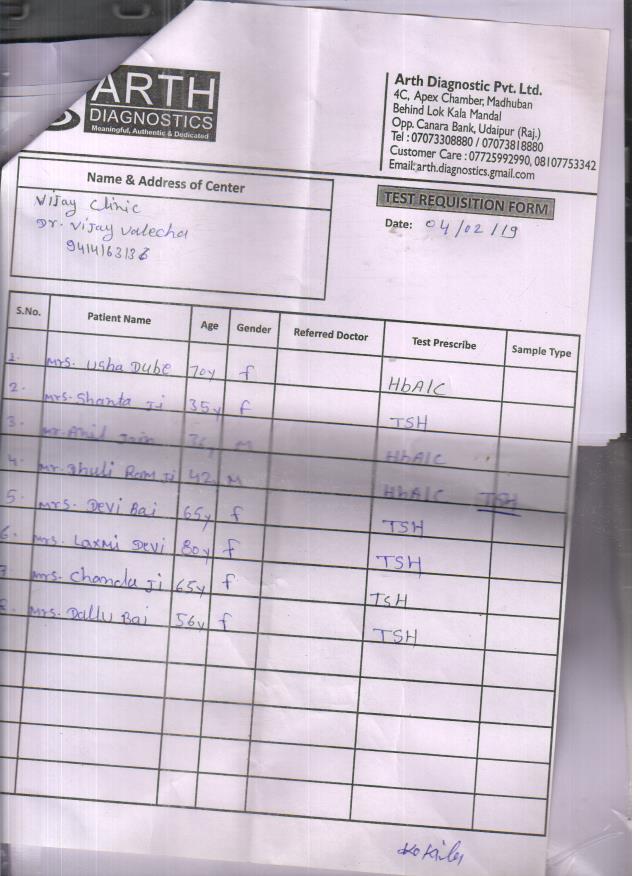 ARTH
DIAGNOSTICS
Meaningful, Authentic & Dedicated
Arth Diagnostic Pvt. Ltd.
4C, Apex Chamber, Madhuban
Behind Lok Kala Mandal
Opp. Canara Bank, Udaipur (Raj.)
Tel : 07073308880 / 07073818880
Customer Care : 07725992990, 08107753342
Email:arth.diagnostics.gmail.com
Name & Address of Center
Vijay Clinic
Dr. Vijay Valecha
TEST REQUISITION FORM
Date: 04/02/19
S.No. Patient Name Age Gender Referred Doctor Test Prescribe Sample Type
1. Mrs. Usha Dube 70y f HbA1C
2. Mrs. Shanta Ji 35y f TSH
3. Mr. Anil Jain M HbA1C
4. Mr. Ram Ji 42 M HbA1C TSH
5. Mrs. Devi Bai 65y f TSH
6. Mrs. Laxmi Devi 80y f TSH
7 Mrs. Chanda Ji 65y f TSH
8. Mrs. Dallu Bai 56y f TSH